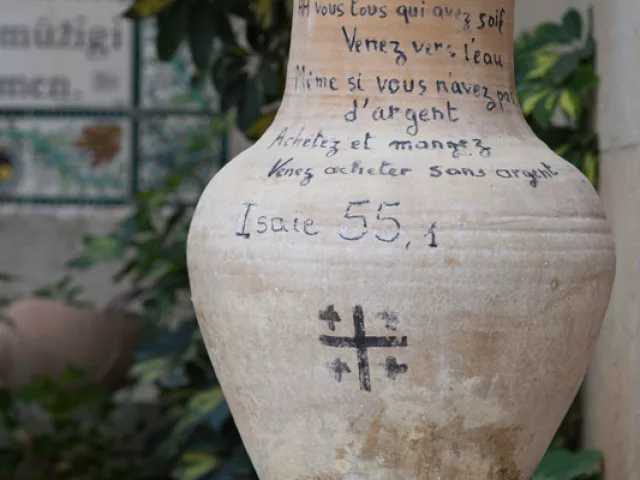 mūžīgi
AH vous tous qui avez soif
Venez vers l'eau
Même si vous n'avez pas
d'argent
Achetez et mangez
Venez acheter sans argent
Isaïe 55, 1